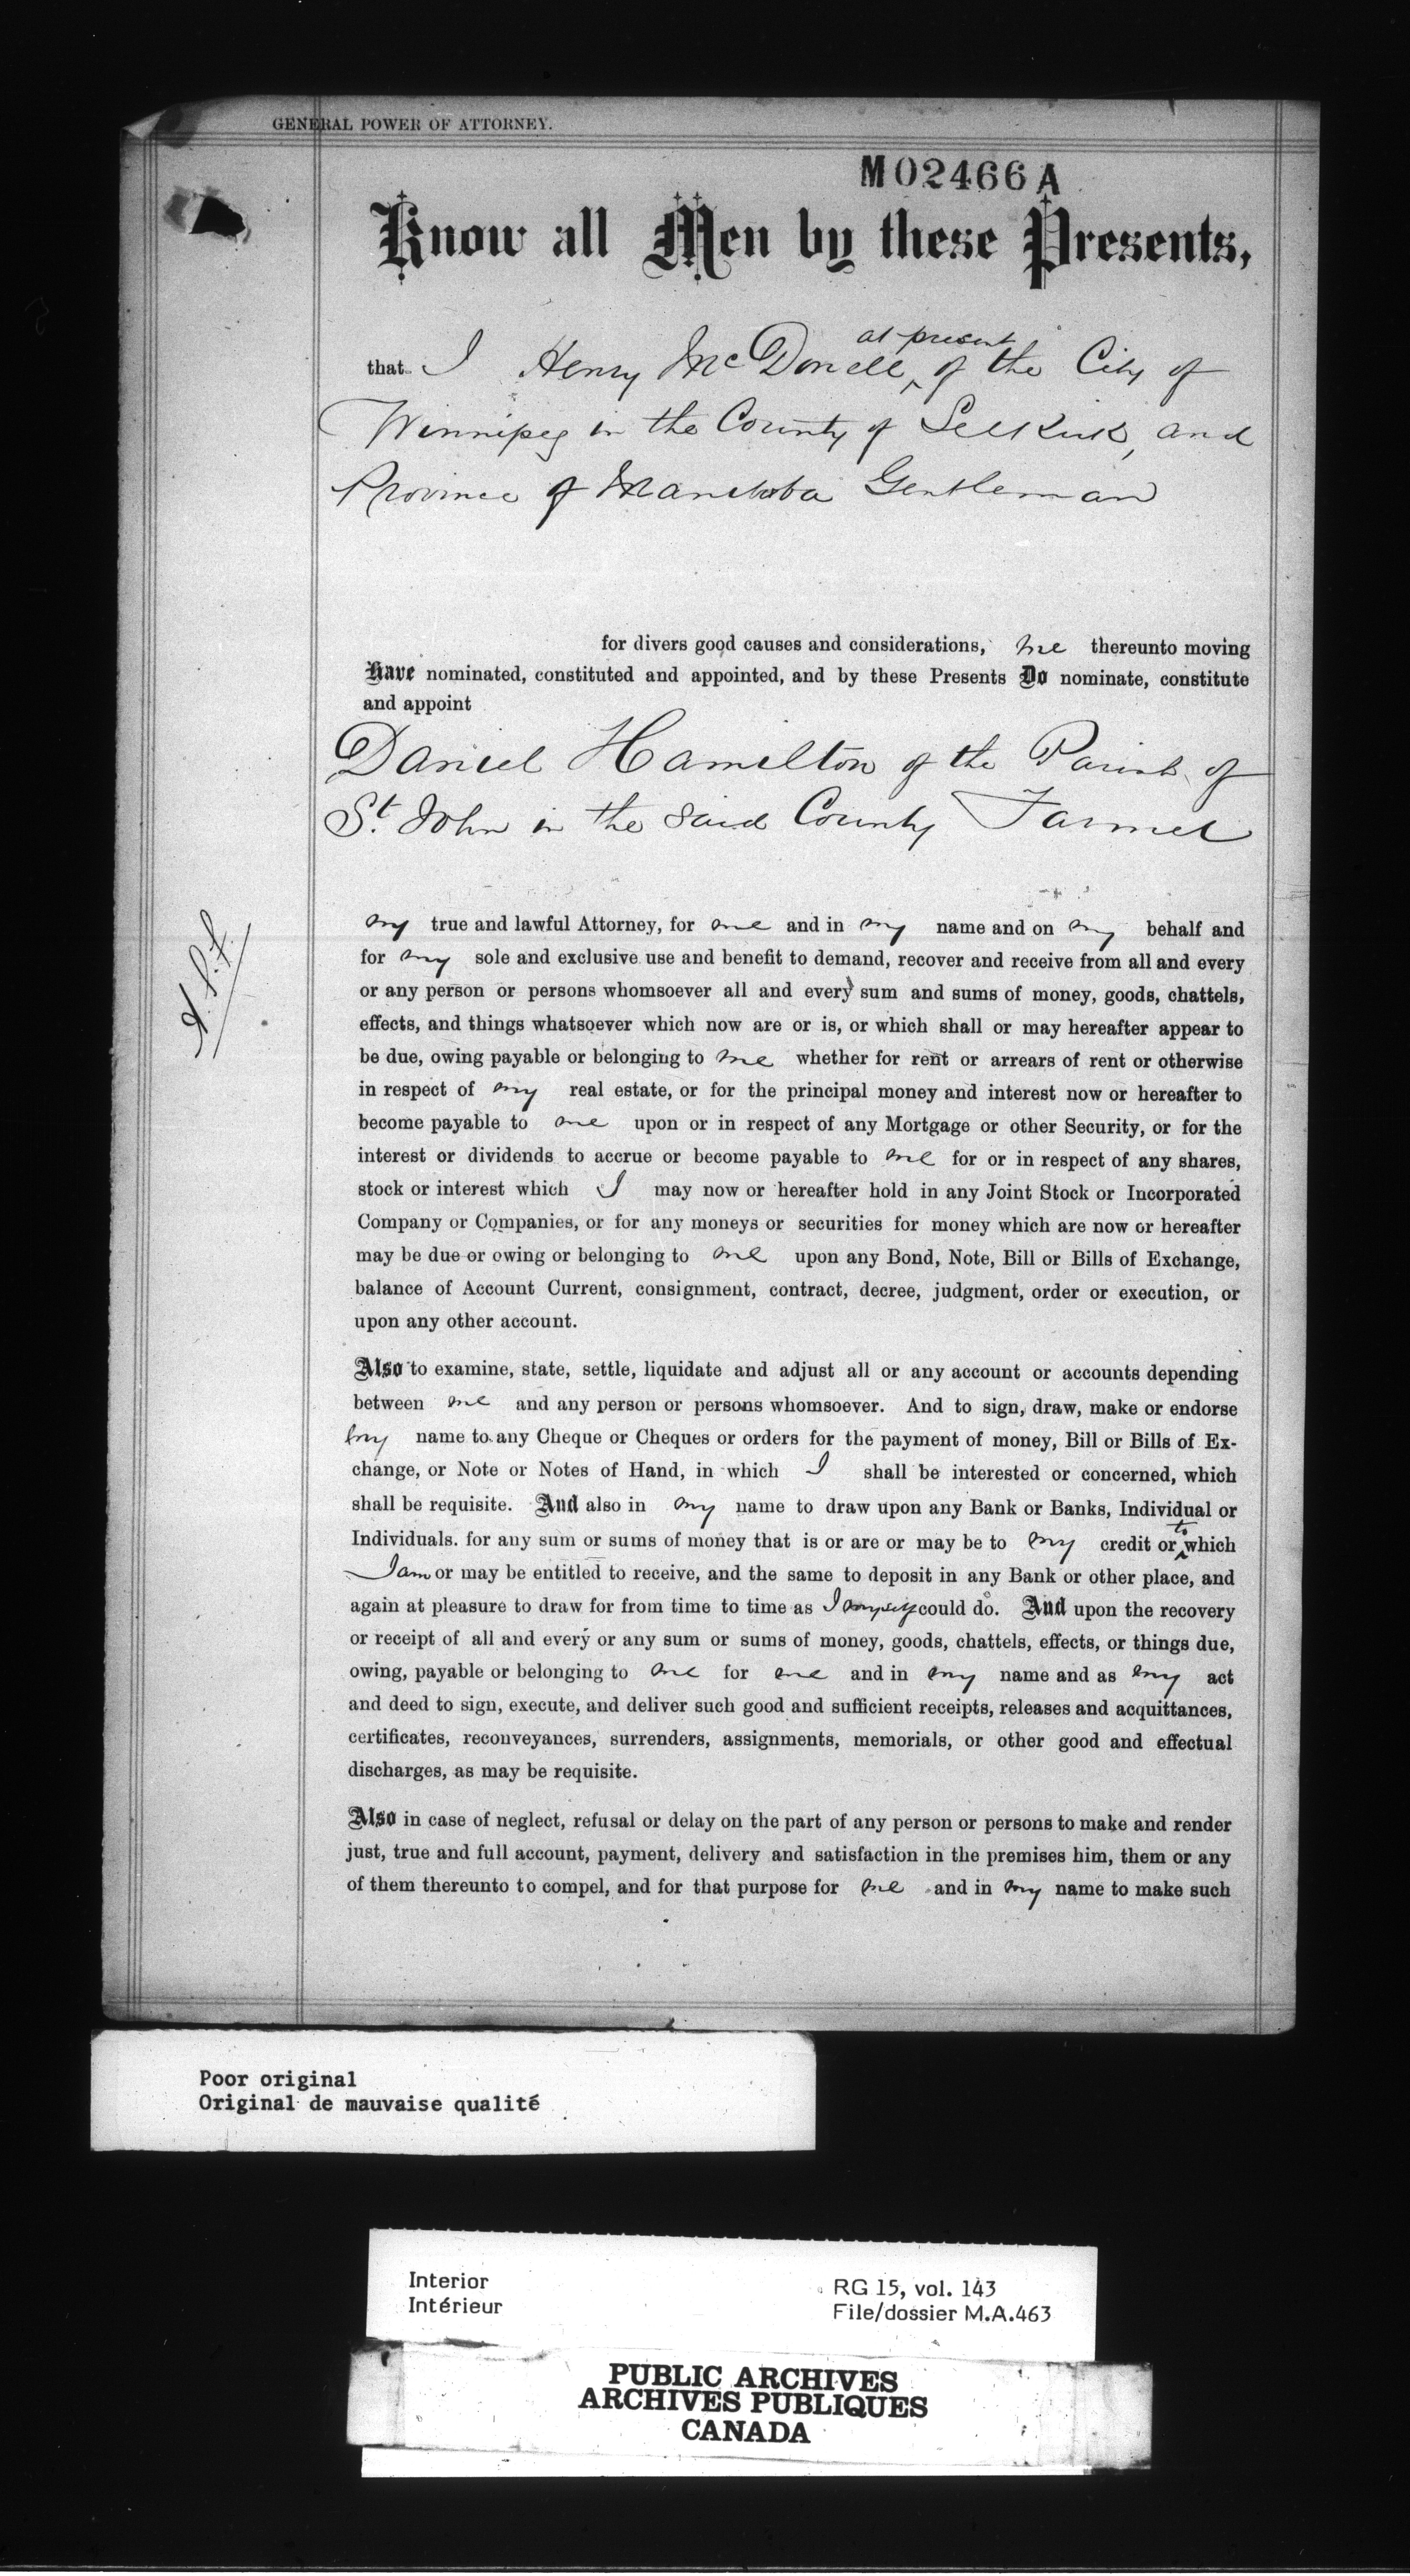 GENERAL POWER OF ATTORNEY.
M02466 A
Know all Men by these Presents,
at present
that I Henry McDonell, of the City of
Winnipeg in the County of Selkirk, and
Province of Manitoba Gentleman
for divers good causes and considerations, me thereunto moving
Have nominated, constituted and appointed, and by these Presents Do nominate, constitute
and appoint
Daniel Hamilton of the Parish of
St. John in the said County Farmer
my true and lawful Attorney, for me and in my name and on my behalf and
for my sole and exclusive use and benefit to demand, recover and receive from all and every
or any person or persons whomsoever all and every sum and sums of money, goods, chattels,
effects, and things whatsoever which now are or is, or which shall or may hereafter appear to
be due, owing payable or belonging to me whether for rent or arrears of rent or otherwise
in respect of my real estate, or for the principal money and interest now or hereafter to
become payable to me upon or in respect of any Mortgage or other Security, or for the
interest or dividends to accrue or become payable to me for or in respect of any shares,
stock or interest which I may now or hereafter hold in any Joint Stock or Incorporated
Company or Companies, or for any moneys or securities for money which are now or hereafter
may be due or owing or belonging to me upon any Bond, Note, Bill or Bills of Exchange,
balance of Account Current, consignment, contract, decree, judgment, order or execution, or
upon any other account.
Also to examine, state, settle, liquidate and adjust all or any account or accounts depending
between me and any person or persons whomsoever. And to sign, draw, make or endorse
my name to any Cheque or Cheques or orders for the payment of money, Bill or Bills of Ex-
change, or Note or Notes of Hand, in which I shall be interested or concerned, which
shall be requisite. And also in my name to draw upon any Bank or Banks, Individual or
Individuals. for any sum or sums of money that is or are or may be to my credit or to which
I am or may be entitled to receive, and the same to deposit in any Bank or other place, and
again at pleasure to draw for from time to time as I myself could do. And upon the recovery
or receipt of all and every or any sum or sums of money, goods, chattels, effects, or things due,
owing, payable or belonging to me for me and in my name and as my act
and deed to sign, execute, and deliver such good and sufficient receipts, releases and acquittances,
certificates, reconveyances, surrenders, assignments, memorials, or other good and effectual
discharges, as may be requisite.
Also in case of neglect, refusal or delay on the part of any person or persons to make and render
just, true and full account, payment, delivery and satisfaction in the premises him, them or any
of them thereunto to compel, and for that purpose for me and in my name to make such
Poor original
Original de mauvaise qualité
Interior
Intérieur
RG 15, vol. 143
File/dossier M.A.463
PUBLIC ARCHIVES
ARCHIVES PUBLIQUES
CANADA